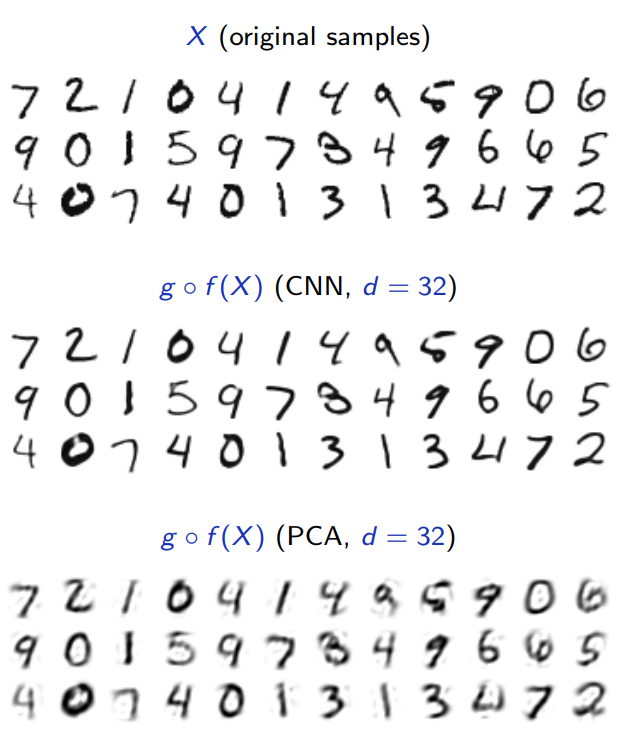 X (original samples)
7 2 1 0 4 1 4 9 5 9 0 6
9 0 1 5 9 7 3 4 9 6 6 5
4 0 7 4 0 1 3 1 3 4 7 2
g ∘ f(X) (CNN, d = 32)
7 2 1 0 4 1 4 9 5 9 0 6
9 0 1 5 9 7 3 4 9 6 6 5
4 0 7 4 0 1 3 1 3 4 7 2
g ∘ f(X) (PCA, d = 32)
7 2 1 0 4 1 4 9 5 9 0 6
9 0 1 5 9 7 3 4 9 6 6 5
4 0 7 4 0 1 3 1 3 4 7 2